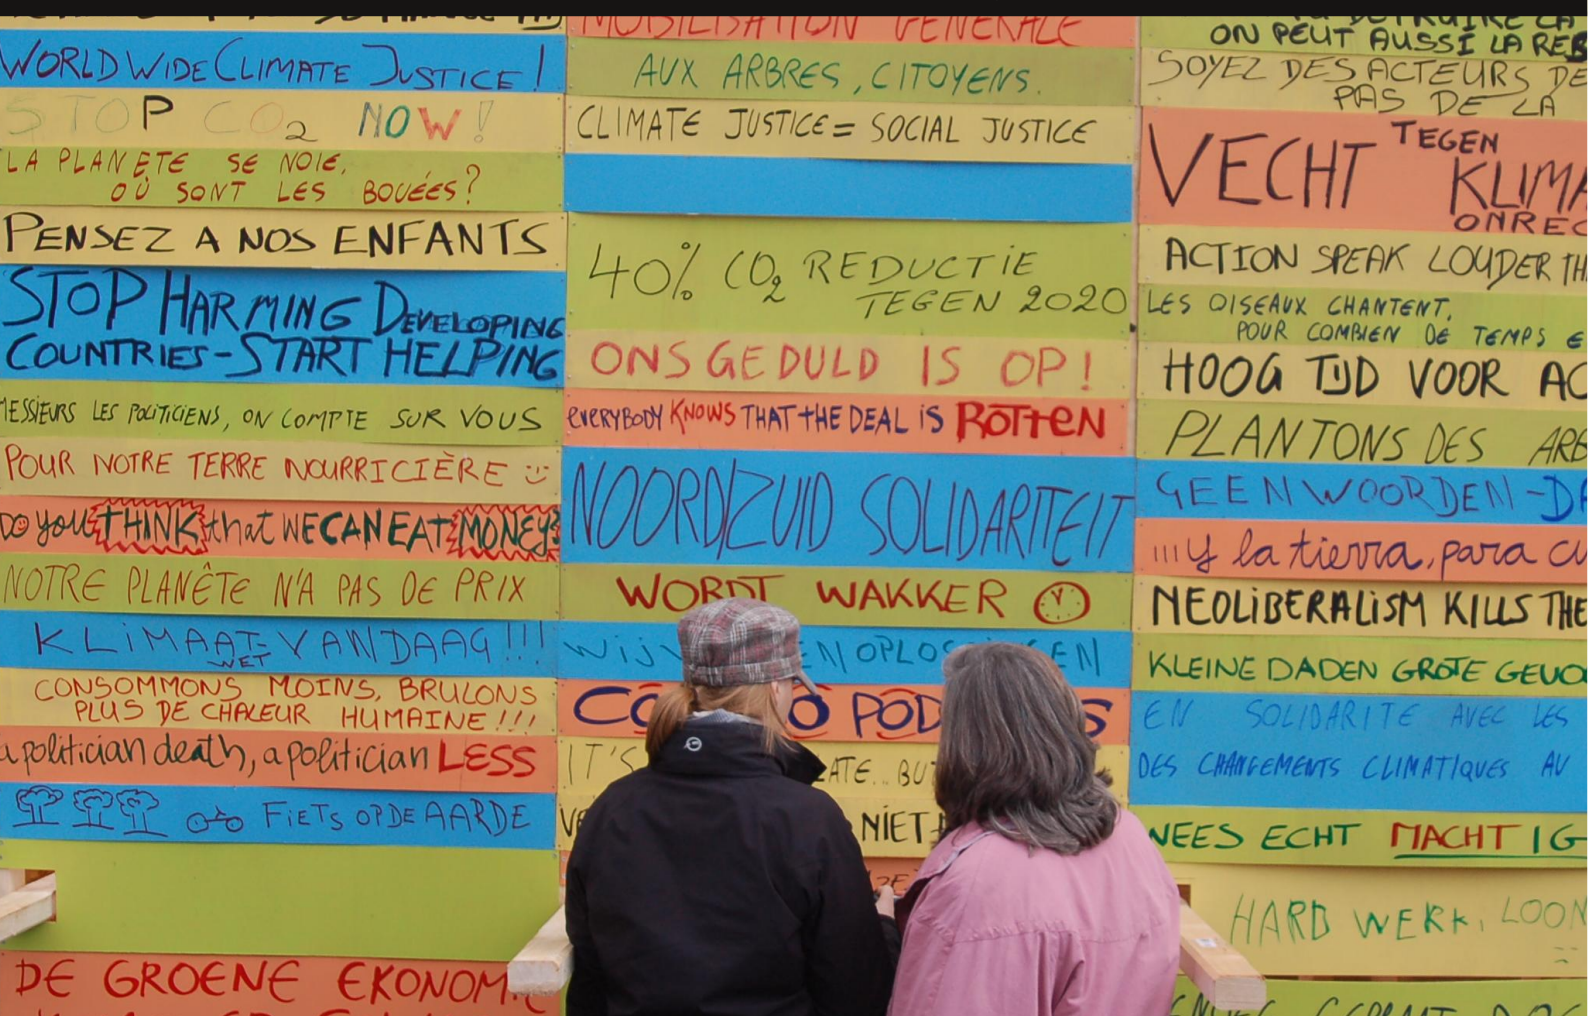 WORLDWIDE CLIMATE JUSTICE!
STOP CO2 NOW!
LA PLANETE SE NOIE,
OÙ SONT LES BOUÉES?
PENSEZ A NOS ENFANTS
STOP HARMING DEVELOPING
COUNTRIES-START HELPING
MESSIEURS LES POLITICIENS, ON COMPTE SUR VOUS
POUR NOTRE TERRE NOURRICIÈRE :)
DO you THINK that WE CAN EAT MONEY?
NOTRE PLANÊTE N'A PAS DE PRIX
KLIMAAT-VANDAAG!!!
WET
CONSOMMONS MOINS, BRULONS
PLUS DE CHALEUR HUMAINE!!!
a politician death, a politician LESS
FIETS OP DE AARDE
DE GROENE EKONOM
MOBILISATION GENERALE
AUX ARBRES, CITOYENS.
CLIMATE JUSTICE = SOCIAL JUSTICE
40% CO2 REDUCTIE
TEGEN 2020
ONS GEDULD IS OP!
everyBODY KNOWS THAT tHE DEAL iS ROTTEN
NOORD/ZUID SOLIDARITEIT
WORDT WAKKER
WIJ
IT'S BU
NIET
ON PEUT AUSSI LA REB
SOYEZ DES ACTEURS DE
PAS DE LA
VECHT TEGEN
KLIMA
ONREC
ACTION SPEAK LOUDER TH
LES OISEAUX CHANTENT,
POUR COMBIEN DE TEMPS E
HOOG TIJD VOOR AC
PLANTONS DES ARB
GEEN WOORDEN-DA
Y la tierra, para cu
NEOLIBERALISM KILLS THE
KLEINE DADEN GROTE GEVO
EN SOLIDARITE AVEC LES
DES CHANGEMENTS CLIMATIQUES AU
WEES ECHT MACHTIG
HARD WERK, LOON